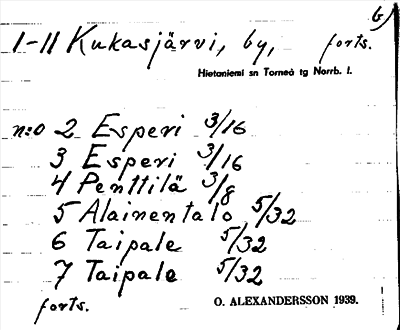 6)
1-11 Kukasjärvi, by, forts.
Hietaniemi sn Torneå tg Norrb. l.
n:o 2 Esperi 3/16
3 Esperi 3/16
4 Penttilä 3/8
5 Alainentalo 5/32
6 Taipale 5/32
7 Taipale 5/32
forts.
O. ALEXANDERSSON 1939.